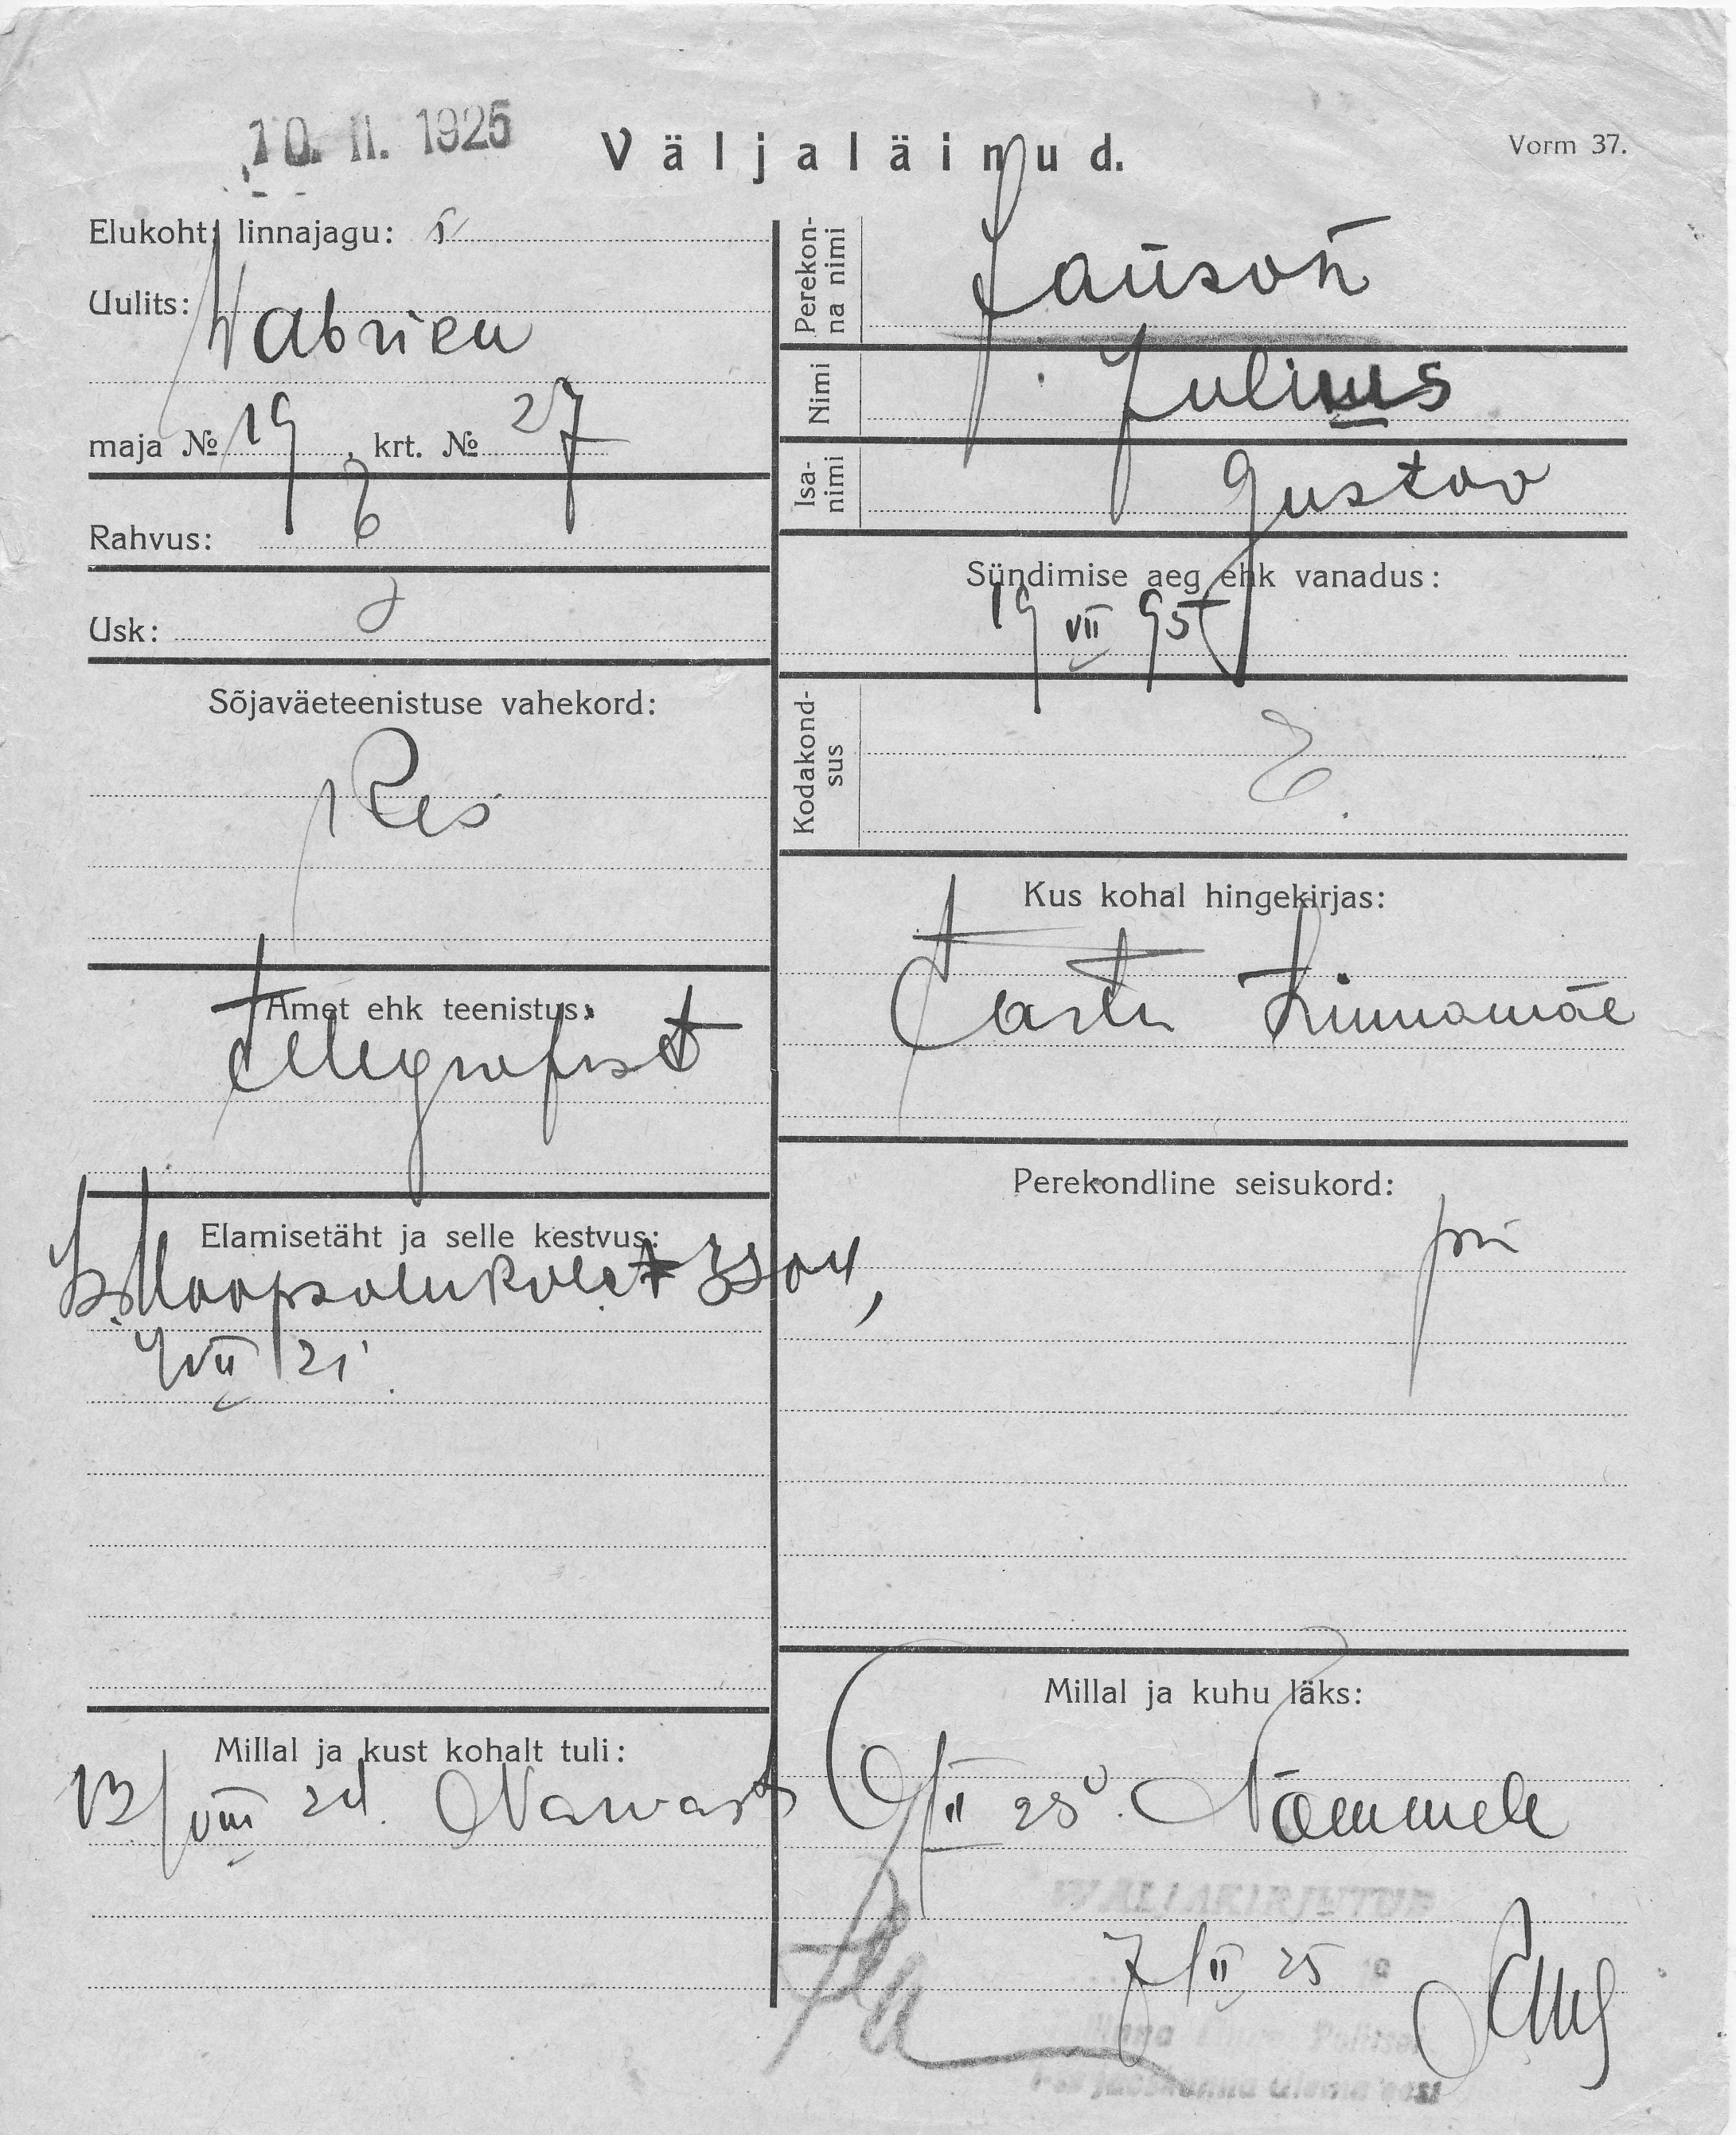 10. II. 1925
Väljaläinud.
Vorm 37.
Elukoht, linnajagu:
Uulits: Wabriku
maja № 19, krt. № 27
Rahvus: E
Usk:
Sõjaväeteenistuse vahekord:
Res
Amet ehk teenistus:
telegrafist
Elamisetäht ja selle kestvus:
Is. Haapsalu Polit 3304,
VII 21
Millal ja kust kohalt tuli:
13/VIII 24. Narvast
Perekonna nimi
Jansoń
Nimi
Julius
Isanimi
Gustav
Sündimise aeg ehk vanadus:
19 VII 95
Kodakondsus
E.
Kus kohal hingekirjas:
Tartu Linnamäe
Perekondline seisukord:
pri
Millal ja kuhu läks:
II 25. Nõmmele
WÄLJAKIRJUTUD
7/II 25